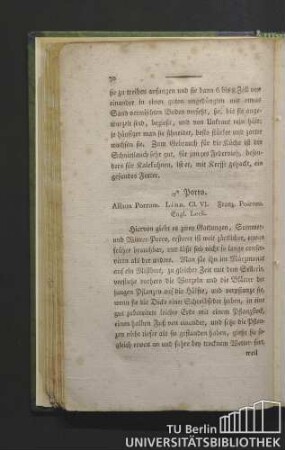 78
sie zu welken anfangen und sie dann 6 bis 8 Zoll von
einander in einen guten umgegrabenen und etwas
Sand vermischten Boden versetzt, sie, bis sie ange-
wurzelt sind, begießt, und von Unkraut rein hält;
je häufiger man sie schneidet, desto stärker und zarter
wachsen sie. Zum Gebrauch für die Küche ist der
Schnittlauch sehr gut, für junges Federvieh, beson-
ders für Kalekuhnen, ist er, mit Grütze gehackt, ein
gesundes Futter.
Porro.
Allium Porrum. Linn. Cl. VI. Franz. Poireau.
Engl. Leek.
Hiervon giebt es zwey Gattungen, Sommer-
und Winter-Porro, ersterer ist weit zärtlicher, aber
früher brauchbar, und läßt sich nicht so lange conser-
viren als der andere. Man säe ihn im März
auf ein Mistbeet, zu gleicher Zeit mit dem Sellerie,
verstutze vorher die Wurzeln und die Blätter der
jungen Pflanzen auf die Hälfte, und verpflanze sie,
wenn sie die Dicke einer Schreibfeder haben, in eine
gut zubereitete leichte Erde mit einem Pflanzstock,
einen halben Fuß von einander, und setze die Pflan-
zen nicht tiefer als sie gestanden haben, gieße sie so
gleich etwas an und fahre bey trocknem Wetter fort,
weil
TU Berlin
UNIVERSITÄTSBIBLIOTHEK